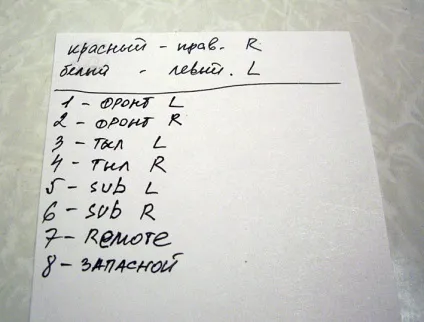 красный - прав. R
белый - левый. L
1 - фронт L
2 - фронт R
3 - тыл L
4 - тыл R
5 - sub L
6 - sub R
7 - Remote
8 - ЗАПАСНОЙ